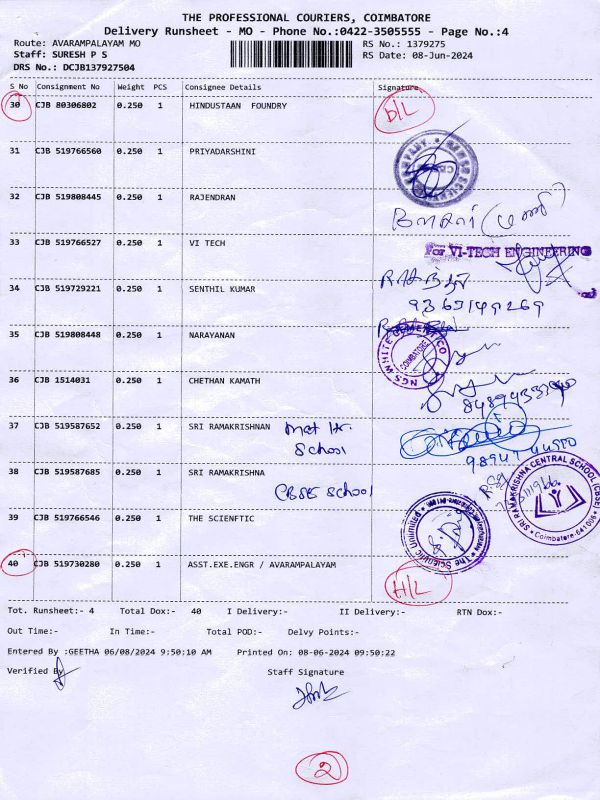 THE PROFESSIONAL COURIERS, COIMBATORE
Delivery Runsheet - MO - Phone No.:0422-3505555 - Page No.:4
Route: AVARAMPALAYAM MO RS No.: 1379275
Staff: SURESH P S RS Date: 08-Jun-2024
DRS No.: DCJB137927504
S No Consignment No Weight PCS Consignee Details Signature
30 CJB 80306802 0.250 1 HINDUSTAAN FOUNDRY D/L
31 CJB 519766560 0.250 1 PRIYADARSHINI
32 CJB 519808445 0.250 1 RAJENDRAN
33 CJB 519766527 0.250 1 VI TECH For VI-TECH ENGINEERING
34 CJB 519729221 0.250 1 SENTHIL KUMAR
35 CJB 519808448 0.250 1 NARAYANAN NGS WHITE CEMENT CO COIMBATORE
36 CJB 1514031 0.250 1 CHETHAN KAMATH
37 CJB 519587652 0.250 1 SRI RAMAKRISHNAN Mat Hr.
School
38 CJB 519587685 0.250 1 SRI RAMAKRISHNA SRI RAMAKRISHNA CENTRAL SCHOOL (CBSE)
CBSE School
Coimbatore-641006
39 CJB 519766546 0.250 1 THE SCIENFTIC The Scientific Unlimited
40 CJB 519730280 0.250 1 ASST.EXE.ENGR / AVARAMPALAYAM
H/L
Tot. Runsheet:- 4 Total Dox:- 40 I Delivery:- II Delivery:- RTN Dox:-
Out Time:- In Time:- Total POD:- Delvy Points:-
Entered By :GEETHA 06/08/2024 9:50:10 AM Printed On: 08-06-2024 09:50:22
Verified By Staff Signature
2